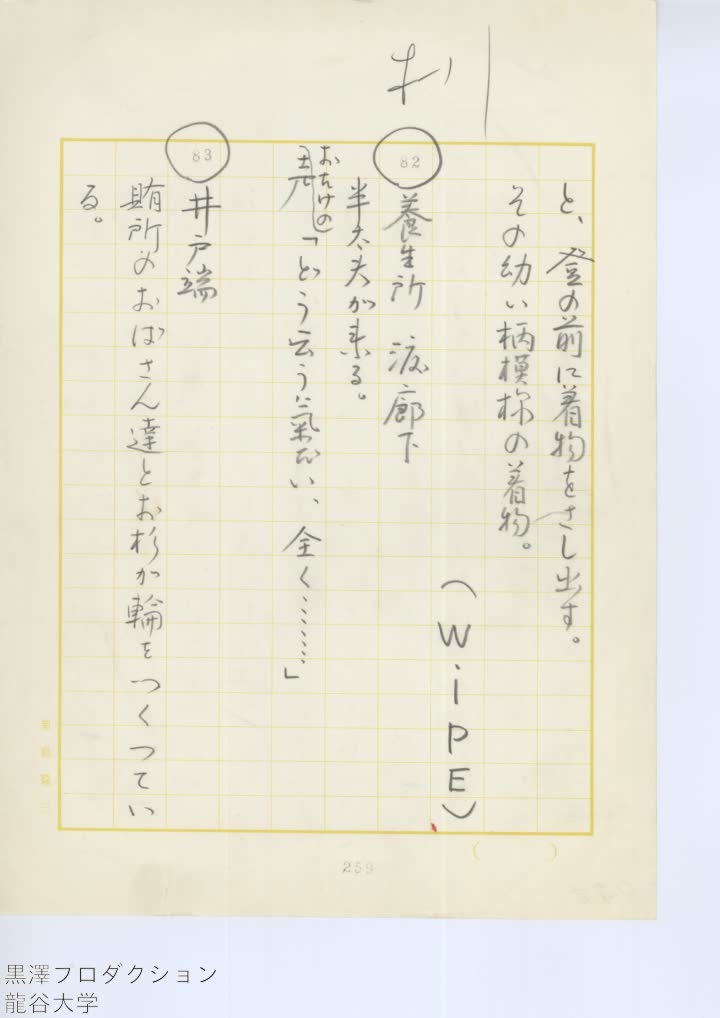 と、登の前に着物をさし出す。
その幼い柄模様の着物。
(WiPE)
82
養生所 渡廊下
半太夫が来る。
おたけの
声「どう云う氣だい、全く……」
83
井戸端
賄所のおばさん達とお杉が輪をつくってい
る。
259
黒澤プロダクション
龍谷大学